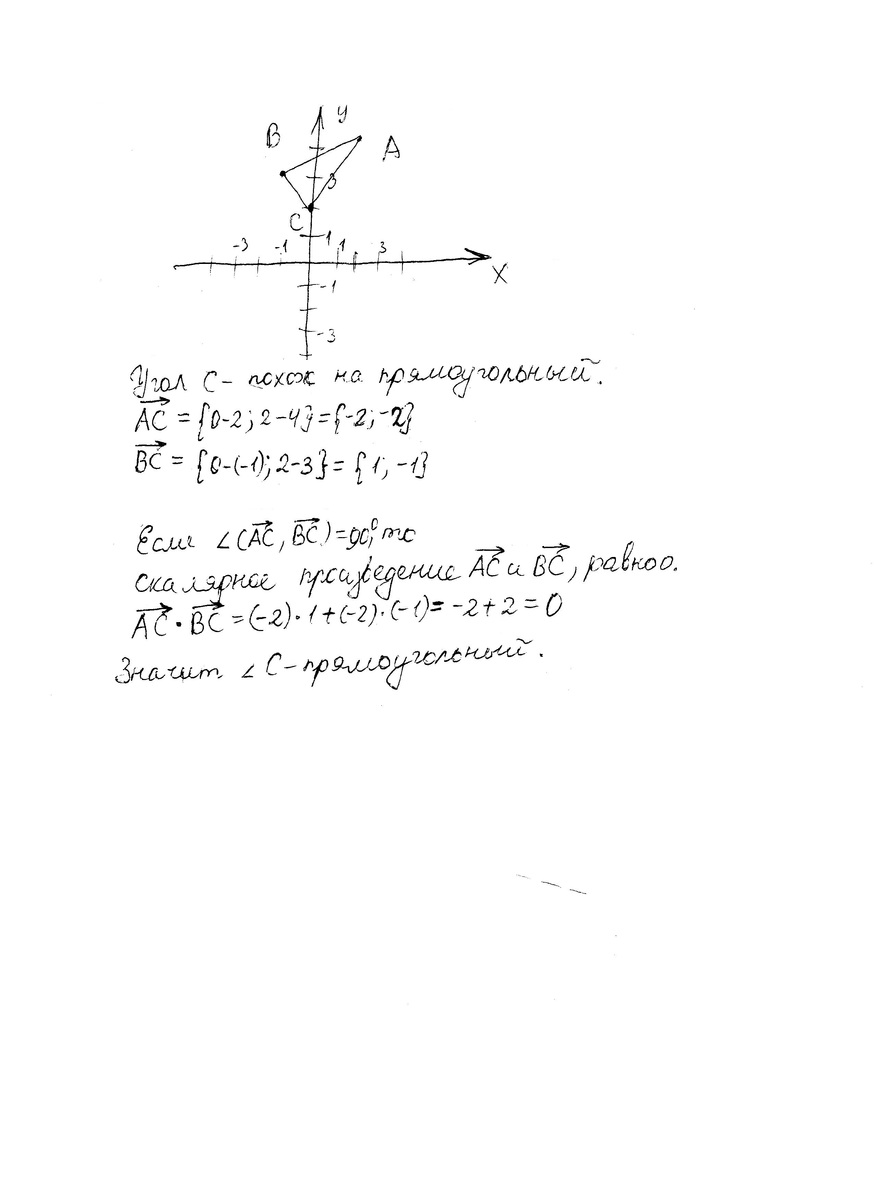 y
B
A
3
C
1
-3 -1 1 3
X
-1
-3
Угол C - похож на прямоугольный.
AC = {0-2; 2-4} = {-2; -2}
BC = {0-(-1); 2-3} = {1; -1}
Если ∠(AC, BC) = 90°, то
скалярное произведение AC и BC, равно 0.
AC · BC = (-2) · 1 + (-2) · (-1) = -2 + 2 = 0
Значит ∠ C - прямоугольный.